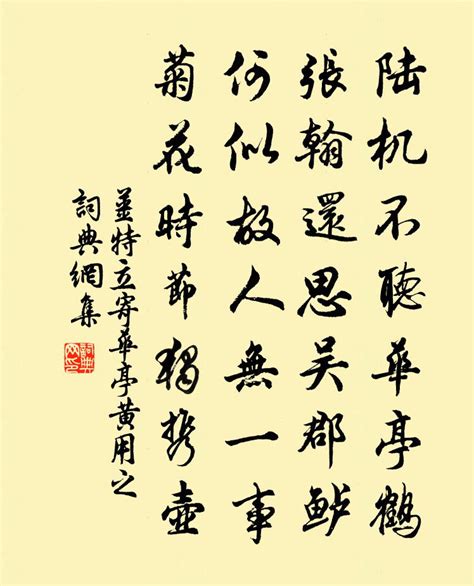 陆机不聽華亭鶴
張翰還思吴郡鲈
何似故人無一事
菊花時節獨携壺
姜特立寄華亭黄用之
詞典網集
詞典网印